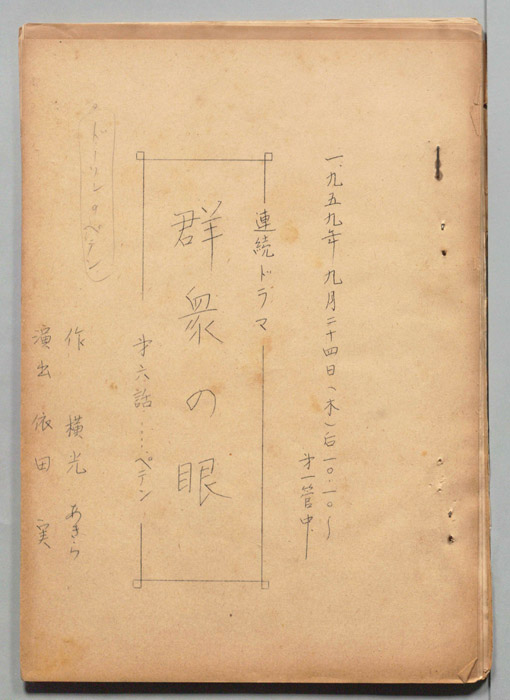 一九五九年九月二十四日(木)后一〇・一〇〜
才一管中
連続ドラマ
群衆の眼
才六話……ペテン
作 横光 あきら
演出 依田 実